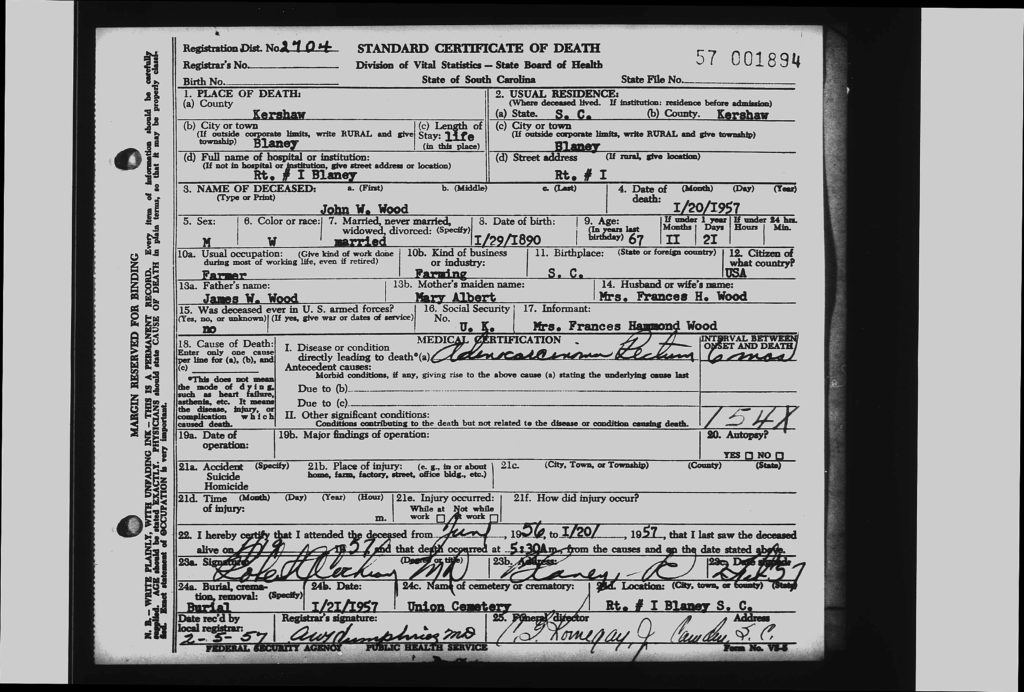 Registration Dist. No. 2704 STANDARD CERTIFICATE OF DEATH 57 001894
Registrar's No. Division of Vital Statistics — State Board of Health
Birth No. State of South Carolina State File No.
1. PLACE OF DEATH: 2. USUAL RESIDENCE:
(a) County (Where deceased lived. If institution: residence before admission)
Kershaw (a) State. S. C. (b) County. Kershaw
(b) City or town (c) Length of (c) City or town
(If outside corporate limits, write RURAL and give Stay: life (If outside corporate limits, write RURAL and give township)
township) Blaney (in this place) Blaney
(d) Full name of hospital or institution: (d) Street address (If rural, give location)
(If not in hospital or institution, give street address or location)
Rt. # I Blaney Rt. # I
3. NAME OF DECEASED: a. (First) b. (Middle) c. (Last) 4. Date of (Month) (Day) (Year)
(Type or Print) death:
John W. Wood I/20/1957
5. Sex: 6. Color or race: 7. Married, never married, 8. Date of birth: 9. Age: If under 1 year If under 24 hrs.
widowed, divorced: (Specify) (In years last Months Days Hours Min.
M W married I/29/1890 birthday) 67 II 2I
10a. Usual occupation: (Give kind of work done 10b. Kind of business 11. Birthplace: (State or foreign country) 12. Citizen of
during most of working life, even if retired) or industry: what country?
Farmer Farming S. C. USA
13a. Father's name: 13b. Mother's maiden name: 14. Husband or wife's name:
James W. Wood Mary Albert Mrs. Frances H. Wood
15. Was deceased ever in U. S. armed forces? 16. Social Security 17. Informant:
(Yes, no, or unknown) (If yes, give war or dates of service) No.
no U. K. Mrs. Frances Hammond Wood
18. Cause of Death: MEDICAL CERTIFICATION INTERVAL BETWEEN
Enter only one cause I. Disease or condition ONSET AND DEATH
per line for (a), (b), and directly leading to death*(a) Adenocarcinoma Rectum 6 mos
(c) Antecedent causes:
*This does not mean Morbid conditions, if any, giving rise to the above cause (a) stating the underlying cause last
the mode of dying, Due to (b)
such as heart failure,
asthenia, etc. It means Due to (c)
the disease, injury, or II. Other significant conditions: 154X
complication which Conditions contributing to the death but not related to the disease or condition causing death.
caused death.
19a. Date of 19b. Major findings of operation: 20. Autopsy?
operation: YES NO
21a. Accident (Specify) 21b. Place of injury: (e. g., in or about 21c. (City, Town, or Township) (County) (State)
Suicide home, farm, factory, street, office bldg., etc.)
Homicide
21d. Time (Month) (Day) (Year) (Hour) 21e. Injury occurred: 21f. How did injury occur?
of injury: While at Not while
m. work at work
22. I hereby certify that I attended the deceased from June, 1956, to I/20/, 1957, that I last saw the deceased
alive on 1957 and that death occurred at 5:30Am., from the causes and on the date stated above.
23a. Signature (Degree or title) 23b. Address: 23c. Date signed
MD Blaney, SC
24a. Burial, crema- 24b. Date: 24c. Name of cemetery or crematory: 24d. Location: (City, town, or county) (State)
tion, removal: (Specify)
Burial I/2I/1957 Union Cemetery Rt. # I Blaney S. C.
Date rec'd by Registrar's signature: 25. Funeral director Address
local registrar:
2-5-57 AW Humphries MD C S Kornegay, Jr Camden, S. C.
FEDERAL SECURITY AGENCY PUBLIC HEALTH SERVICE Form No. VS-5
MARGIN RESERVED FOR BINDING
N. B.—WRITE PLAINLY, WITH UNFADING INK—THIS IS A PERMANENT RECORD. Every item of information should be carefully
supplied. AGE should be stated EXACTLY. PHYSICIANS should state CAUSE OF DEATH in plain terms, so that it may be properly classi-
fied. Exact statement of OCCUPATION is very important.